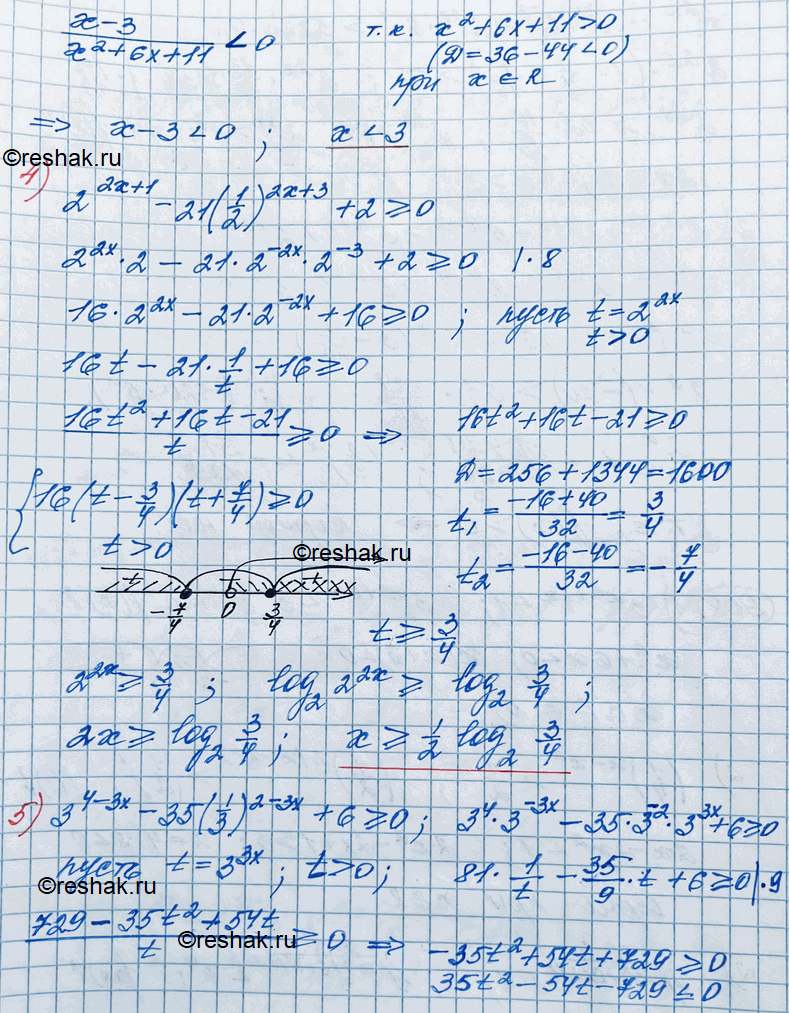 (x-3)/(x²+6x+11) < 0    т.к. x²+6x+11>0
(D=36-44<0)
при x ∈ R
=> x-3<0 ; x<3
©reshak.ru
4)
2^(2x+1) - 21(1/2)^(2x+3) + 2 ⩾ 0
2^(2x)·2 - 21·2^(-2x)·2^(-3) + 2 ⩾ 0 |·8
16·2^(2x) - 21·2^(-2x) + 16 ⩾ 0 ; пусть t = 2^(2x)
t>0
16t - 21·1/t + 16 ⩾ 0
(16t²+16t-21)/t ⩾ 0 => 16t²+16t-21 ⩾ 0
D = 256+1344 = 1600
{ 16(t - 3/4)(t + 7/4) ⩾ 0    t₁ = (-16+40)/32 = 3/4
t>0
©reshak.ru
t₂ = (-16-40)/32 = -7/4
+ - +
-7/4 0 3/4
t ⩾ 3/4
2^(2x) ⩾ 3/4 ; log₂ 2^(2x) ⩾ log₂ 3/4 ;
2x ⩾ log₂ 3/4 ; x ⩾ 1/2 log₂ 3/4
5) 3^(4-3x) - 35(1/3)^(2-3x) + 6 ⩾ 0 ; 3⁴·3^(-3x) - 35·3^(-2)·3^(3x) + 6 ⩾ 0
пусть t = 3^(3x) ; t>0 ; 81·1/t - 35/9·t + 6 ⩾ 0 |·9
©reshak.ru
(729 - 35t² + 54t)/t ⩾ 0 => -35t²+54t+729 ⩾ 0
©reshak.ru
35t² - 54t - 729 ⩽ 0